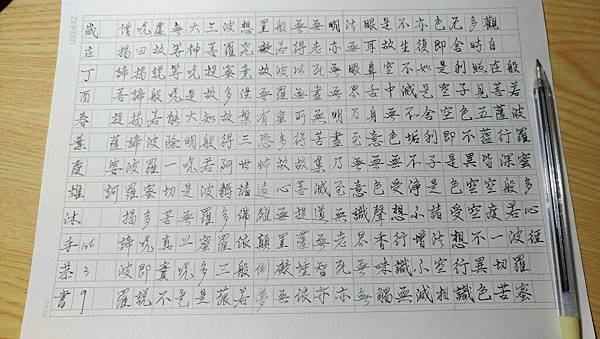 般若波羅蜜多心經
觀自在菩薩行深般若波羅蜜
多時照見五蘊皆空度一切苦
厄舍利子色不異空空不異色
色即是空空即是色受想行識
亦復如是舍利子是諸法空相
不生不滅不垢不淨不增不減
是故空中無色無受想行識無
眼耳鼻舌身意無色聲香味觸
法無眼界乃至無意識界無無
明亦無無明盡乃至無老死亦
無老死盡無苦集滅道無智亦
無得以無所得故菩提薩埵依
般若波羅蜜多故心無罣礙無
罣礙故無有恐怖遠離顛倒夢
想究竟涅槃三世諸佛依般若
波羅蜜多故得阿耨多羅三藐
三菩提故知般若波羅蜜多是
大神呪是大明呪是無上呪是
無等等呪能除一切苦真實不
虛故說般若波羅蜜多呪即說
呪曰揭諦揭諦波羅揭諦波羅
僧揭諦菩提薩婆訶
106 3 9
歲在丁酉春葉慶雄沐手恭書